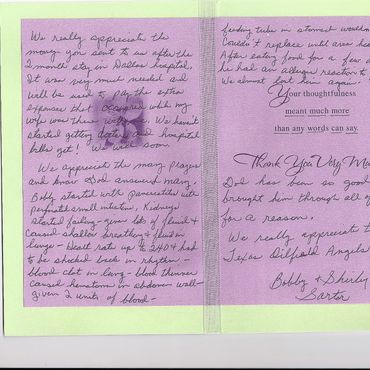 We really appreciate the
money you sent to us after the
2 month stay in Dallas hospital.
It was very much needed and
will be used to pay the extra
expenses that occurred while my
wife was there with me. We haven't
started getting doctor and hospital
bills yet! We will soon.
We appreciate the many prayers
and know God answered many.
Bobby started with pancreatitis with
perforated small intestine, Kidneys
started failing - gave lots of fluid &
caused shallow breathing & fluid in
lungs - Heart rate up to 240 & had
to be shocked back in rhythm -
blood clot in lung - blood thinner
caused hematoma in abdomen wall -
given 2 units of blood -
feeding tube in stomach
Couldn't replace until area
After eating food for a few
he had an allergic reaction
We almost lost him again.
Your thoughtfulness
meant much more
than any words can say.
Thank You Very
God has been so good
brought him through all
for a reason.
We really appreciate
Texas Oilfield Angels
Bobby & Shirley
Sartor